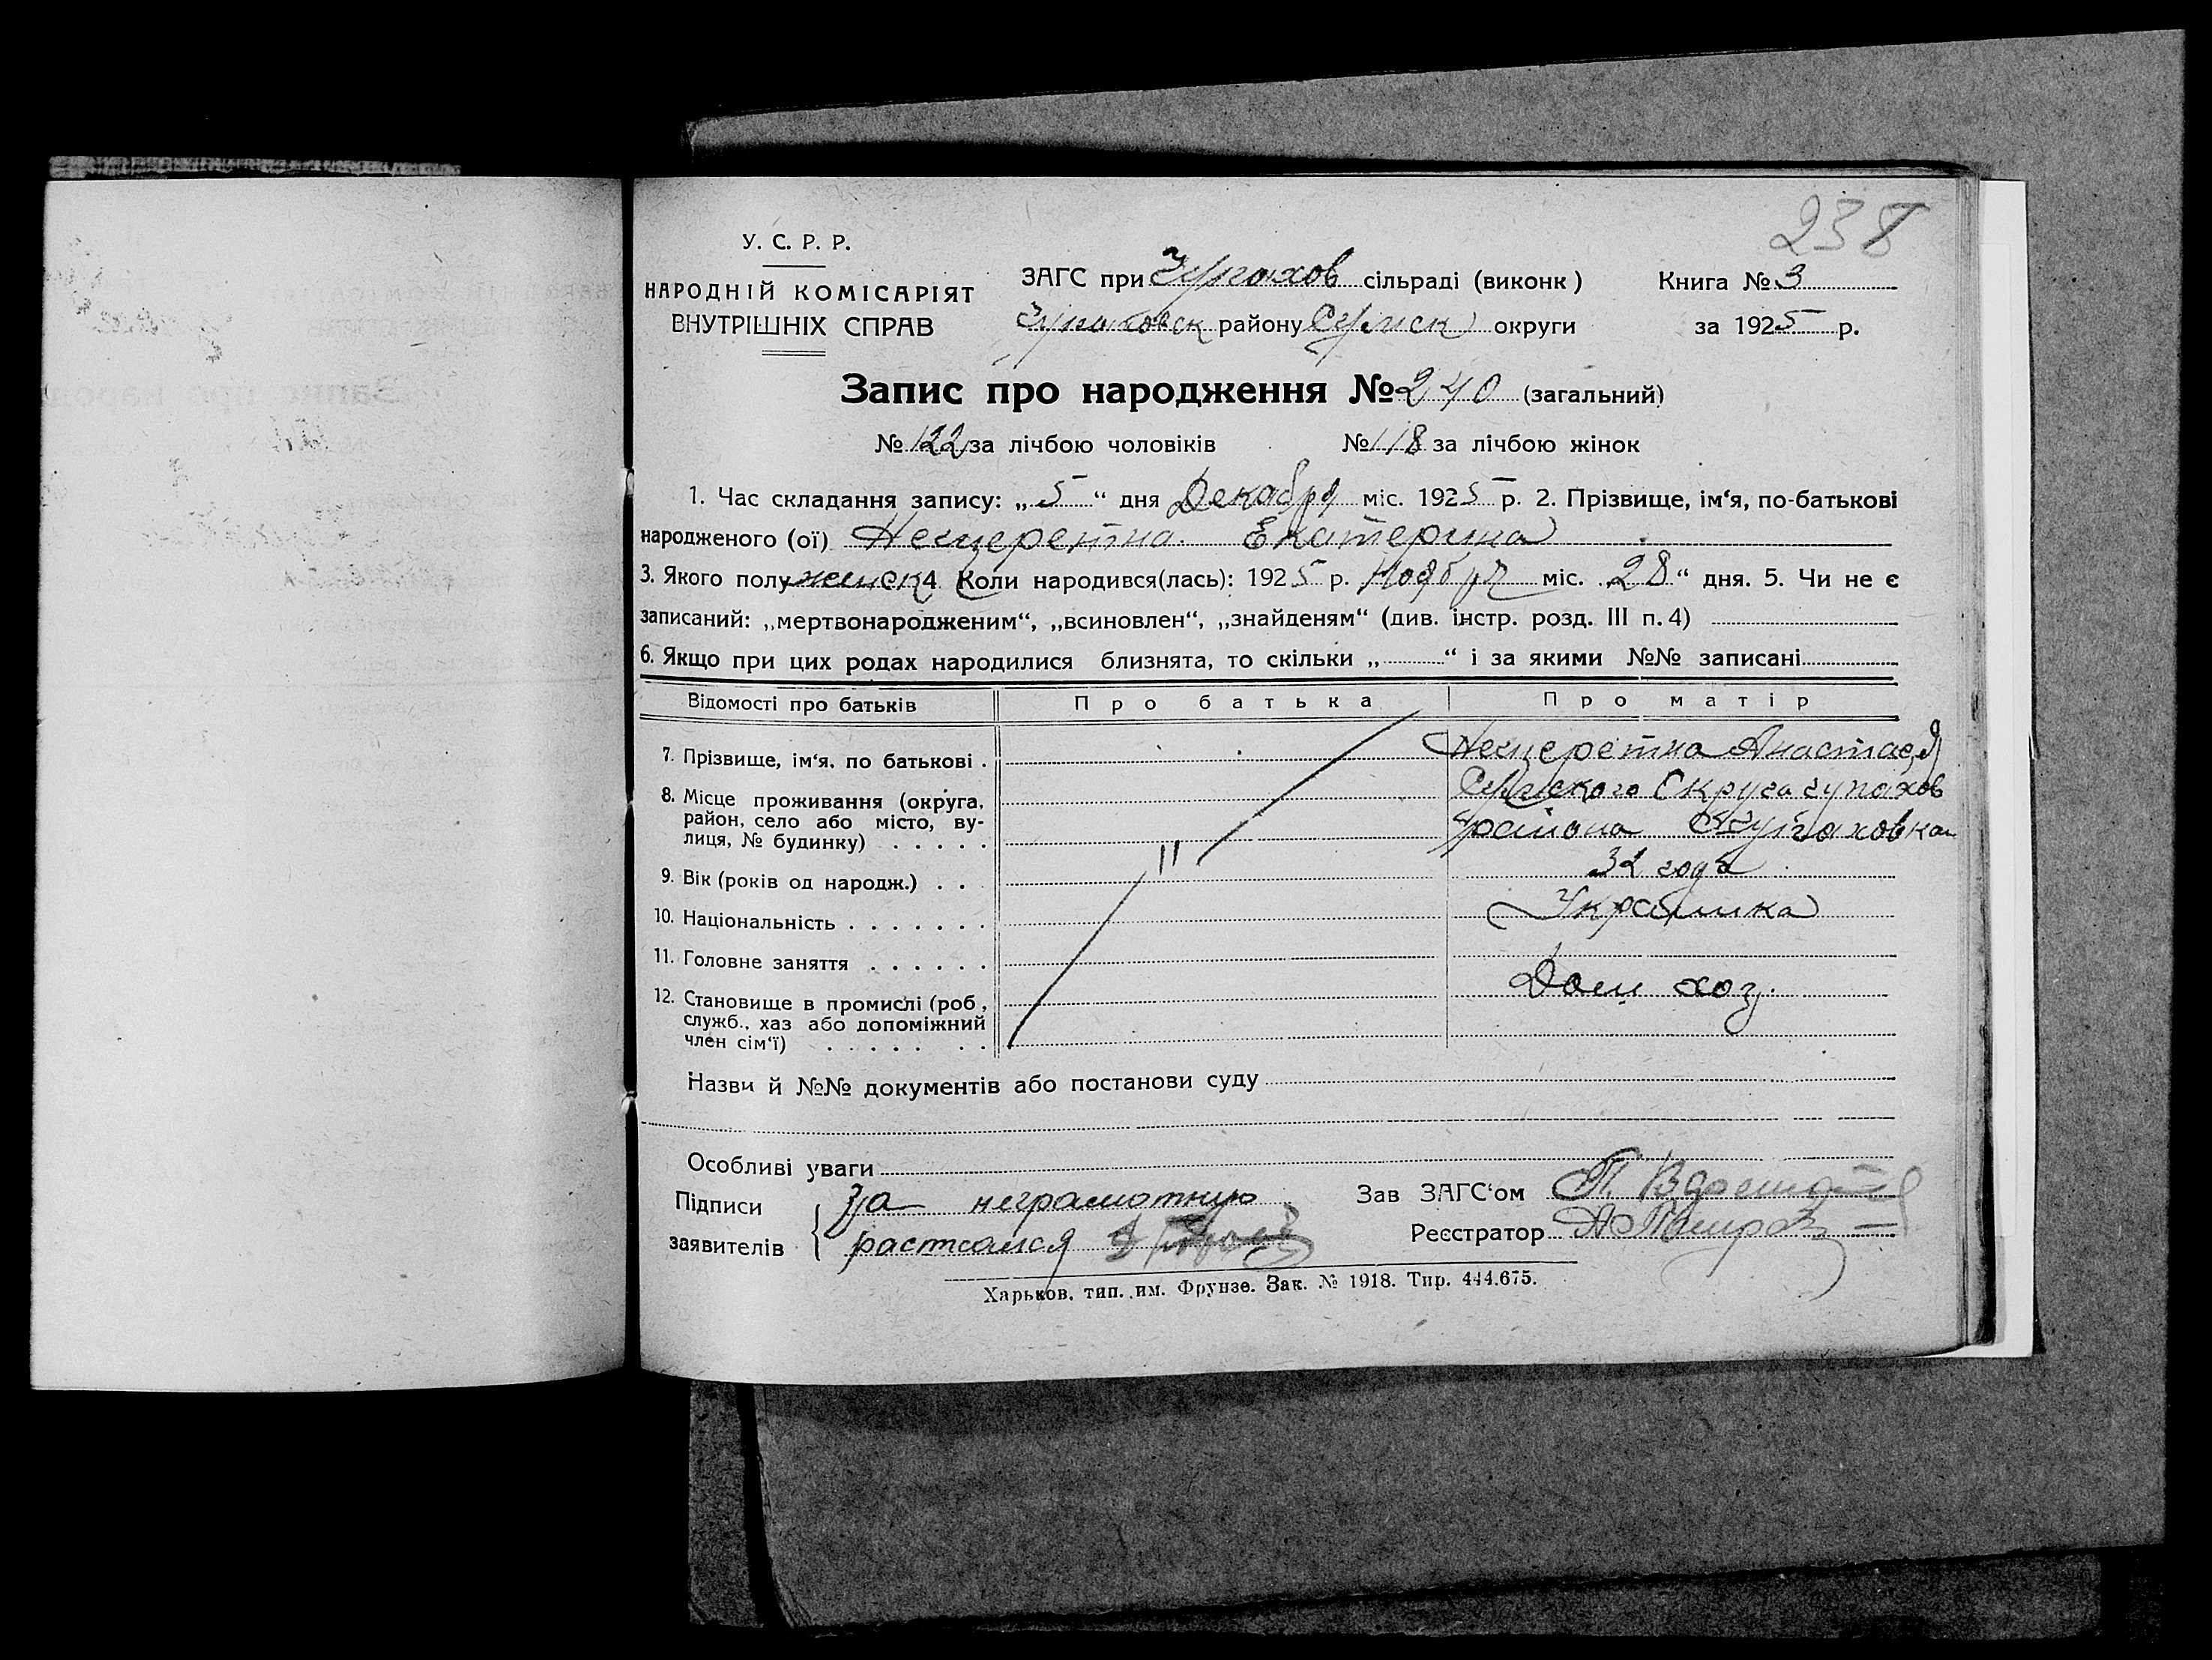 238
У. С. Р. Р.
НАРОДНІЙ КОМІСАРІЯТ
ВНУТРІШНІХ СПРАВ
ЗАГС при Чупахов сільраді (виконк)
Чупаховск району Сумск округи
Книга № 3
за 1925 р.
Запис про народження № 240 (загальний)
№ 122 за лічбою чоловіків № 118 за лічбою жінок
1. Час складання запису: „5“ дня Декабря міс. 1925 р. 2. Прізвище, ім‘я, по-батькові
народженого (ої) Нещеретна Екатерина
3. Якого полу женск 4. Коли народився(лась): 1925 р. Ноября міс. 28“ дня. 5. Чи не є
записаний: „мертвонародженим“, „всиновлен“, „знайденям“ (див. інстр. розд. III п. 4)
6. Якщо при цих родах народилися близнята, то скільки „ “ і за якими №№ записані
Відомості про батьків Про батька Про матір
7. Прізвище, ім‘я, по батькові . Нещеретна Анастасия
8. Місце проживання (округа, Сумского Округа Чупахов
район, село або місто, ву- района
лиця, № будинку) . . . . .
9. Вік (років од народж.) . . . 32 года
10. Національність . . . . . . . Украинка
11. Головне заняття . . . . . .
12. Становище в промислі (роб, Дом хоз.
служб., хаз або допоміжний
член сім‘ї) . . . . . . .
Назви й №№ документів або постанови суду
Особливі уваги
Підписи за неграмотную
заявителів
Зав ЗАГС‘ом
Реєстратор
Харьков, тип. им. Фрунзе. Зак. № 1918. Тир. 444.675.